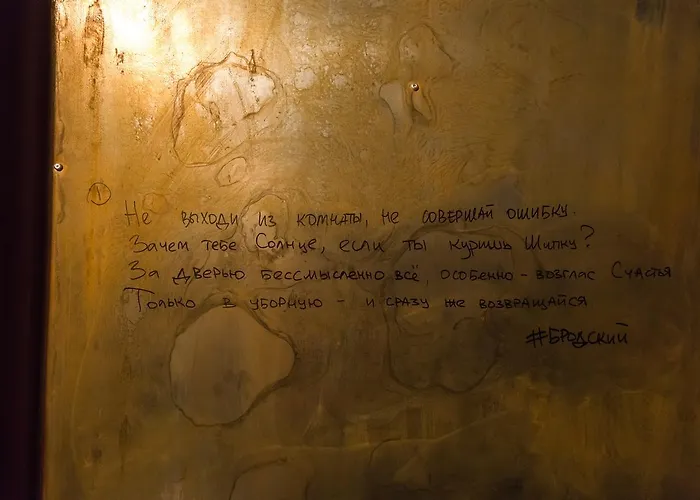 Не выходи из комнаты, не совершай ошибку.
Зачем тебе Солнце, если ты куришь Шипку?
За дверью бессмысленно всё, особенно - возглас Счастья
Только в уборную - и сразу же возвращайся
#Бродский